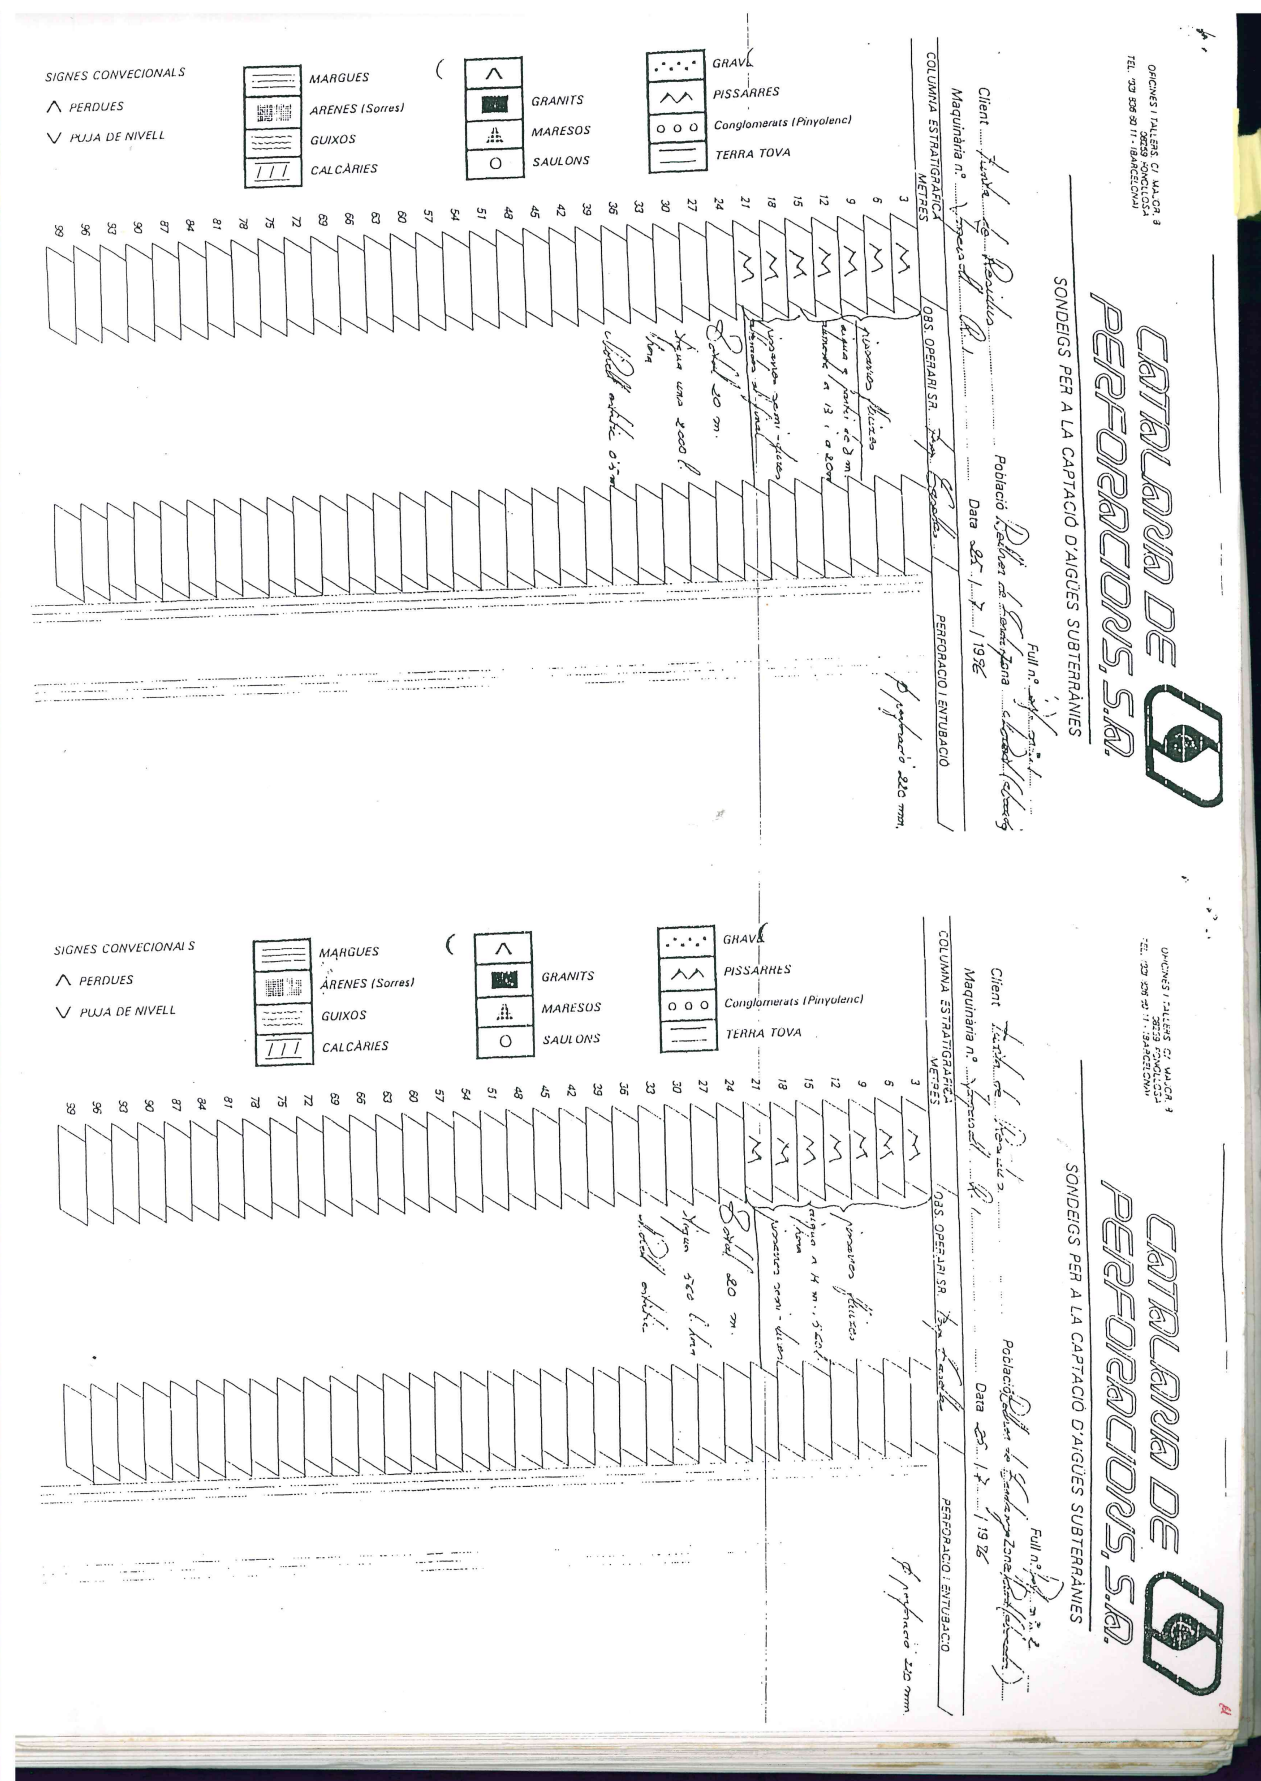 CATALANA DE
PERFORACIONS, S.A.
OFICINES I TALLERS. C/ MAJOR, 8
08259 FONOLLOSA
(BARCELONA)
SONDEIGS PER A LA CAPTACIÓ D'AIGÜES SUBTERRÀNIES
Full nº
Client Junta de Residus
Població
Maquinària nº
Data 25 / 7 / 1996
COLUMNA ESTRATIGRÀFICA
METRES
OBS. OPERARI SR.
PERFORACIÓ I ENTUBACIÓ
3
6
9
12
15
18
21
24
27
30
33
36
39
42
45
48
51
54
57
60
63
66
69
72
75
78
81
84
87
90
93
96
99
pissarres fluixes
aigua a partir de 8 m
a 13 i a 20m
pissarres semi-dures
Total 20 m.
Aigua uns 2000 l.
hora
Nivell estàtic 0'5 m
Ø perforació 220 mm.
GRAVA
PISSARRES
Conglomerats (Pinyolenc)
TERRA TOVA
GRANITS
MARESOS
SAULONS
MARGUES
ARENES (Sorres)
GUIXOS
CALCÀRIES
SIGNES CONVECIONALS
PERDUES
PUJA DE NIVELL
CATALANA DE
PERFORACIONS, S.A.
OFICINES I TALLERS. C/ MAJOR, 8
08259 FONOLLOSA
(BARCELONA)
SONDEIGS PER A LA CAPTACIÓ D'AIGÜES SUBTERRÀNIES
Full nº
Client Junta de Residus
Població
Maquinària nº
Data / 7 / 1996
COLUMNA ESTRATIGRÀFICA
METRES
OBS. OPERARI SR.
PERFORACIÓ I ENTUBACIÓ
3
6
9
12
15
18
21
24
27
30
33
36
39
42
45
48
51
54
57
60
63
66
69
72
75
78
81
84
87
90
93
96
99
pissarres fluixes
aigua a 4 m., 560 l.
hora
pissarres semi-dures
Total 20 m.
Aigua 560 l. hora
Nivell estàtic
Ø perforació 220 mm.
GRAVA
PISSARRES
Conglomerats (Pinyolenc)
TERRA TOVA
GRANITS
MARESOS
SAULONS
MARGUES
ARENES (Sorres)
GUIXOS
CALCÀRIES
SIGNES CONVECIONALS
PERDUES
PUJA DE NIVELL